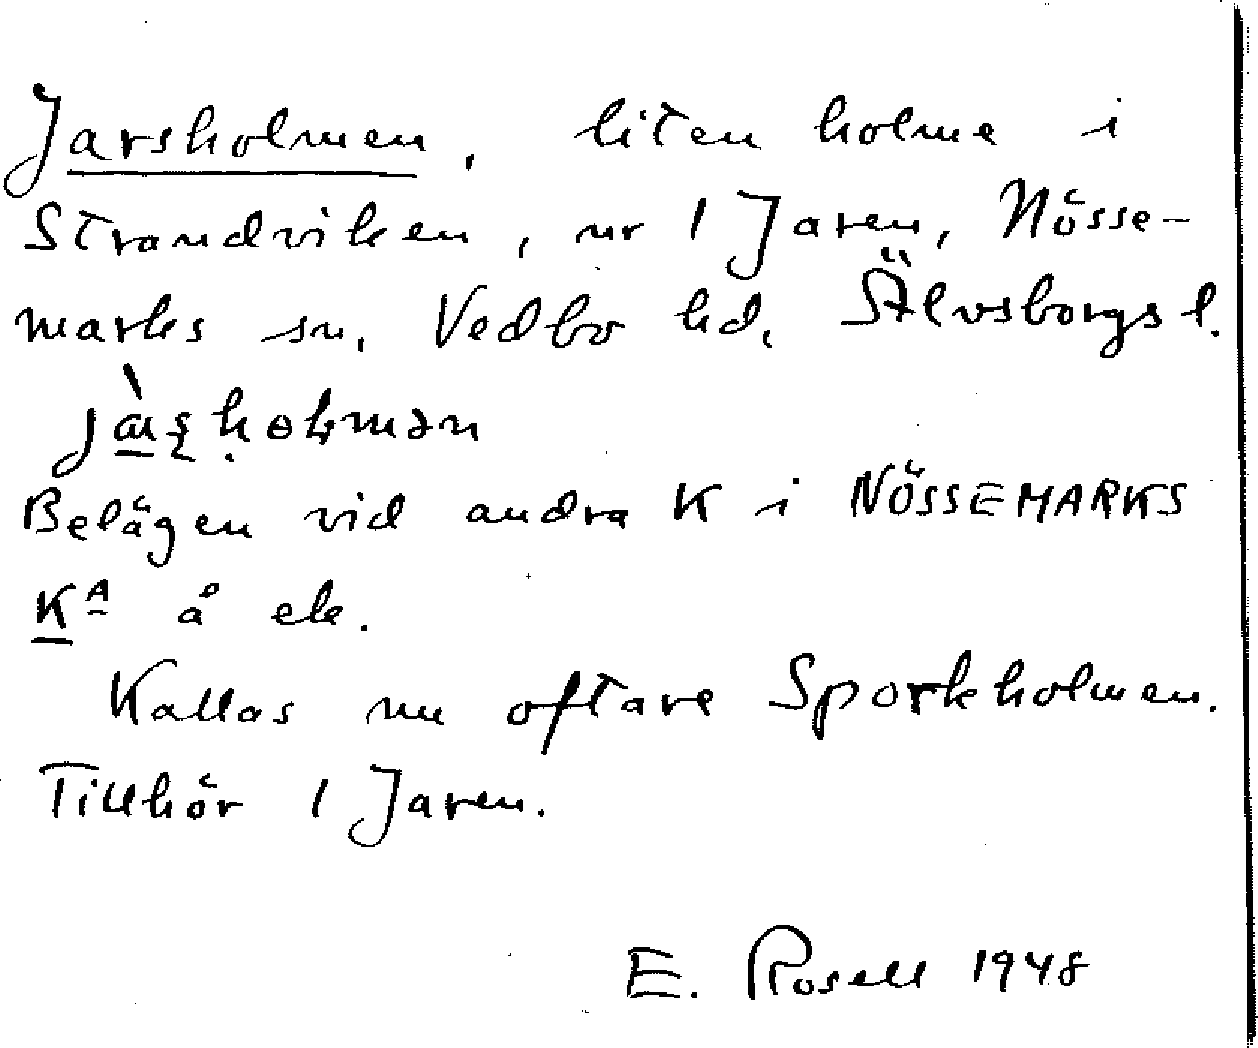 Jarsholmen, liten holme i
Strandviken, nr 1 Jaren, Nösse-
marks sn, Vedbo hd, Älvsborgs l.
Belägen vid andra K i NÖSSEMARKS
Kᴬ å ek.
Kallas nu oftare Sporkholmen.
Tillhör 1 Jaren.
E. Rosell 1948